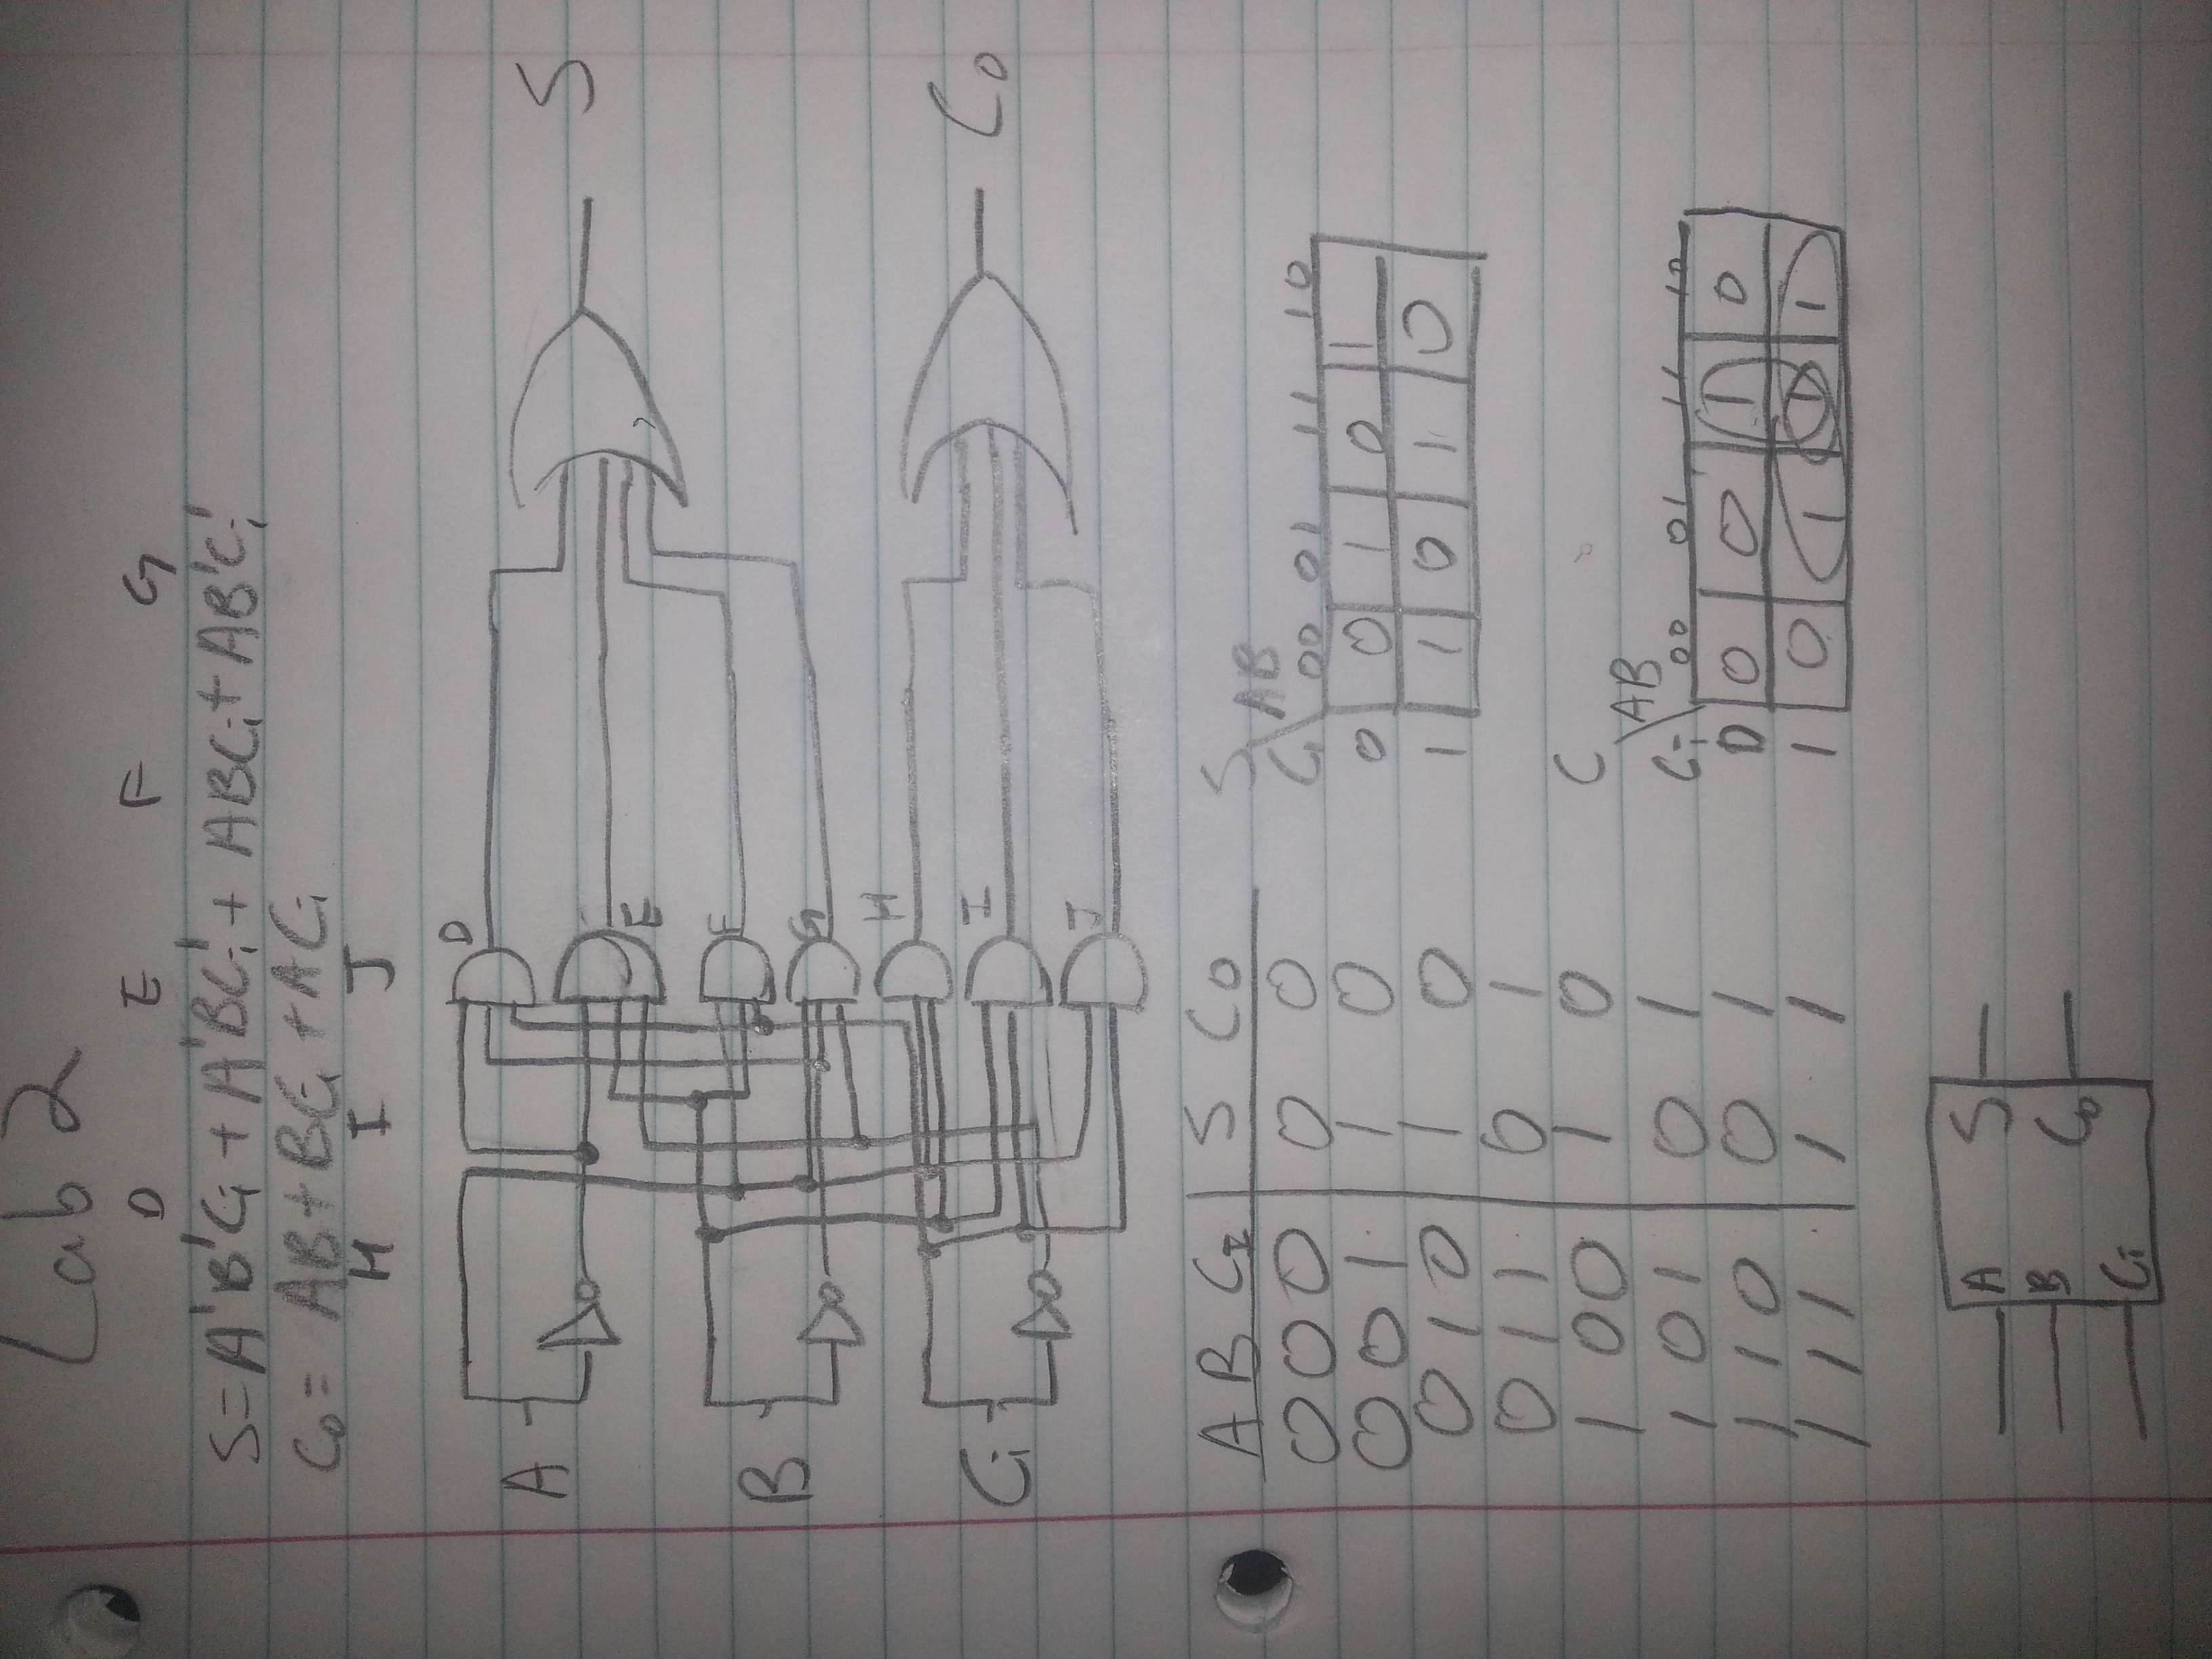 Lab 2
D E F G
S = A'B'Ci + A'BCi' + ABCi + AB'Ci'
Co = AB + BCi + ACi
H I J
D
A
S
E
F
B
G
H
I
Ci
Co
J
A B CI S Co
0 0 0 0 0
0 0 1 1 0
0 1 0 1 0
0 1 1 0 1
1 0 0 1 0
1 0 1 0 1
1 1 0 0 1
1 1 1 1 1
S
AB
Ci 00 01 11 10
0 0 1 0 1
1 1 0 1 0
C
AB
Ci 00 01 11 10
0 0 0 1 0
1 0 1 1 1
A S
B
Co
Ci